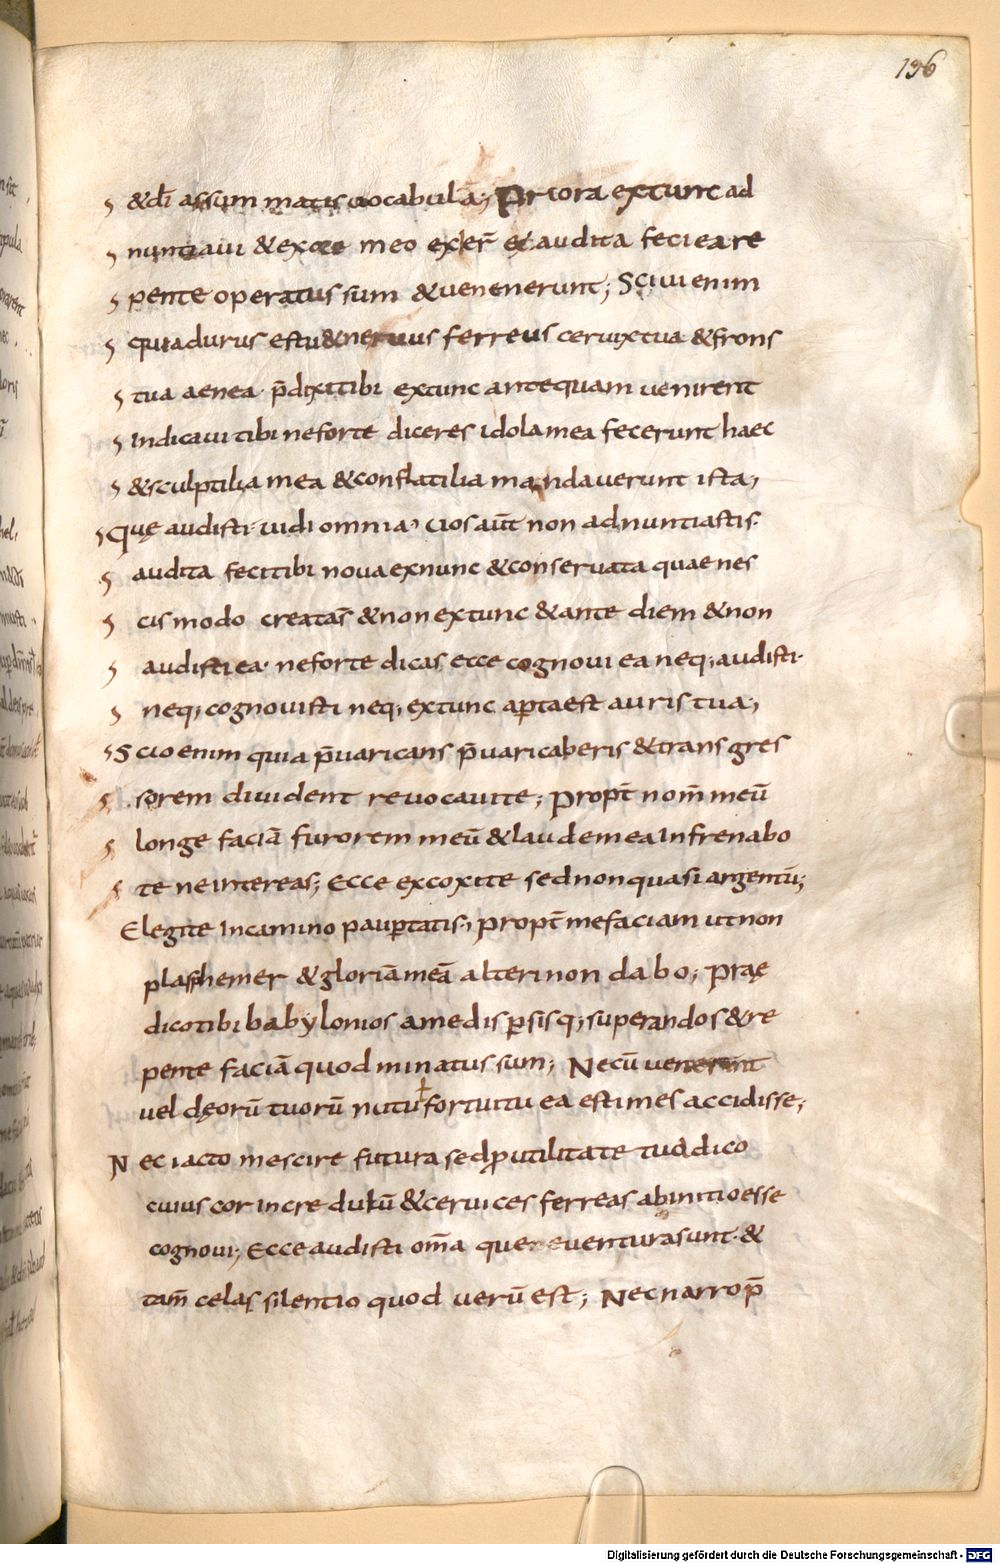 136
&di assummatis uocabula; Priora extunc ad
nuntiaui &exore meo exier̄ et audita feci ea re
pente operatus sum &uenenerunt; Sciui enim
quia durus es tu &neruus ferreus ceruix tua &frons
tua aenea· p̄dixi tibi extunc antequam uenirent
Indicaui tibi ne forte diceres idola mea fecerunt haec
&sculptilia mea &conflatilia mandauerunt ista;
Quę audisti uidi omnia· uos aūt non adnuntiastis·
audita feci tibi noua ex nunc &conseruata quae nes
cis modo creata s̄ &non extunc &ante diem &non
audisti ea· ne forte dicas ecce cognoui ea neq; audisti·
neq; cognouisti neq; extunc apta est auris tua;
Scio enim quia p̄uaricans p̄uaricaberis &transgres
sorem diuident reuocaui te; Propt̄ nom̄ meū
longe faciā furorem meū &laude mea Infrenabo
te ne intereas; Ecce excoxi te sed non quasi argentū;
Elegi te In camino paup̄tatis; propt̄ me faciam ut non
plasphemer &gloriā meā alteri non dabo; Pręe
dico tibi babylonios a medis p̄sisq; superandos &re
pente faciā quod minatus sum; Ne cū uenerint
uel dęorū tuorū nutu fortuitu ea estimes accidisse;
Nec iacto me scire futura sed p utilitate tua dico
cuius cor incredulū &ceruices ferreas ab initio esse
cognoui; Ecce audisti om̄a que euentura sunt· &
tam̄ celas silentio quod uerū est; Nec narro p̄
Digitalisierung gefördert durch die Deutsche Forschungsgemeinschaft - DFG